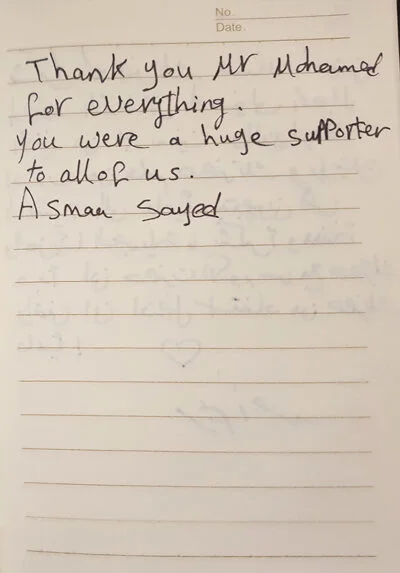 No.
Date.
Thank you Mr Mohamed
for everything.
you were a huge supporter
to all of us.
Asmaa Sayed